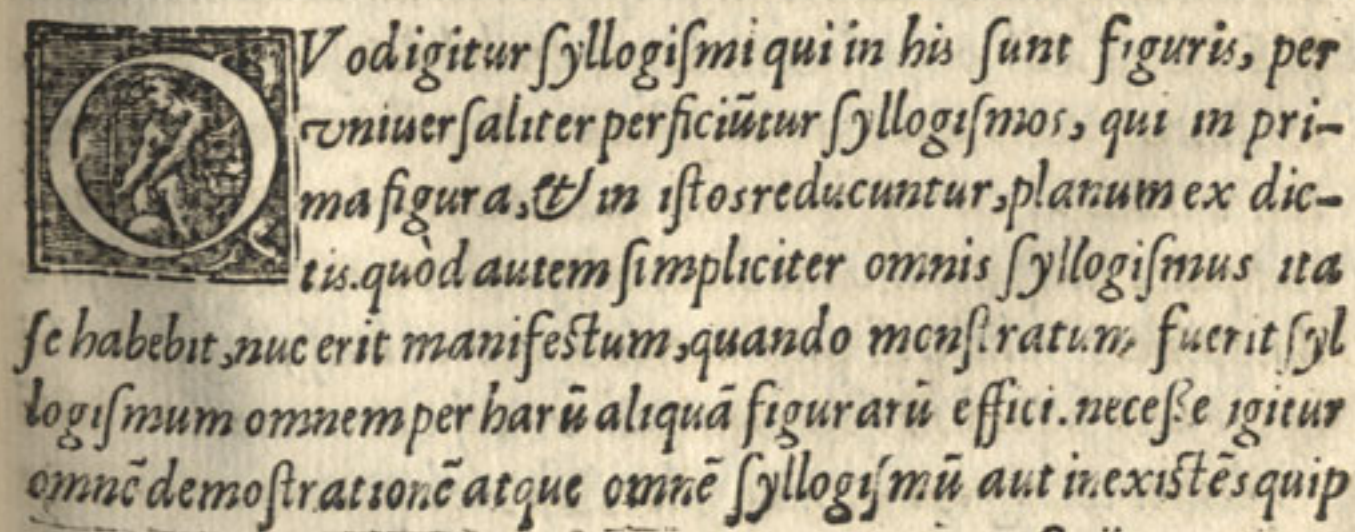 QVod igitur ſyllogiſmi qui in his ſunt figuris, per
vniuerſaliter perficiūtur ſyllogiſmos, qui in pri-
ma figura, & in iſtos reducuntur, planum ex dic-
tis. quòd autem ſimpliciter omnis ſyllogiſmus ita
ſe habebit, nuc erit manifeſtum, quando monſtratum fuerit ſyl
logiſmum omnem per harū aliquā figurarū effici. neceſſe igitur
omnē demoſtrationē atque omnē ſyllogiſmū aut inexiſtēs quip